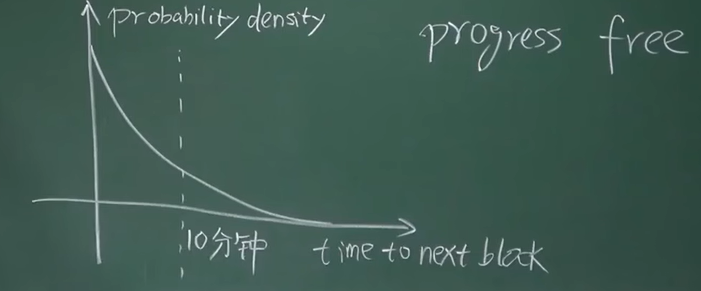 probability density
progress free
10分钟
time to next block